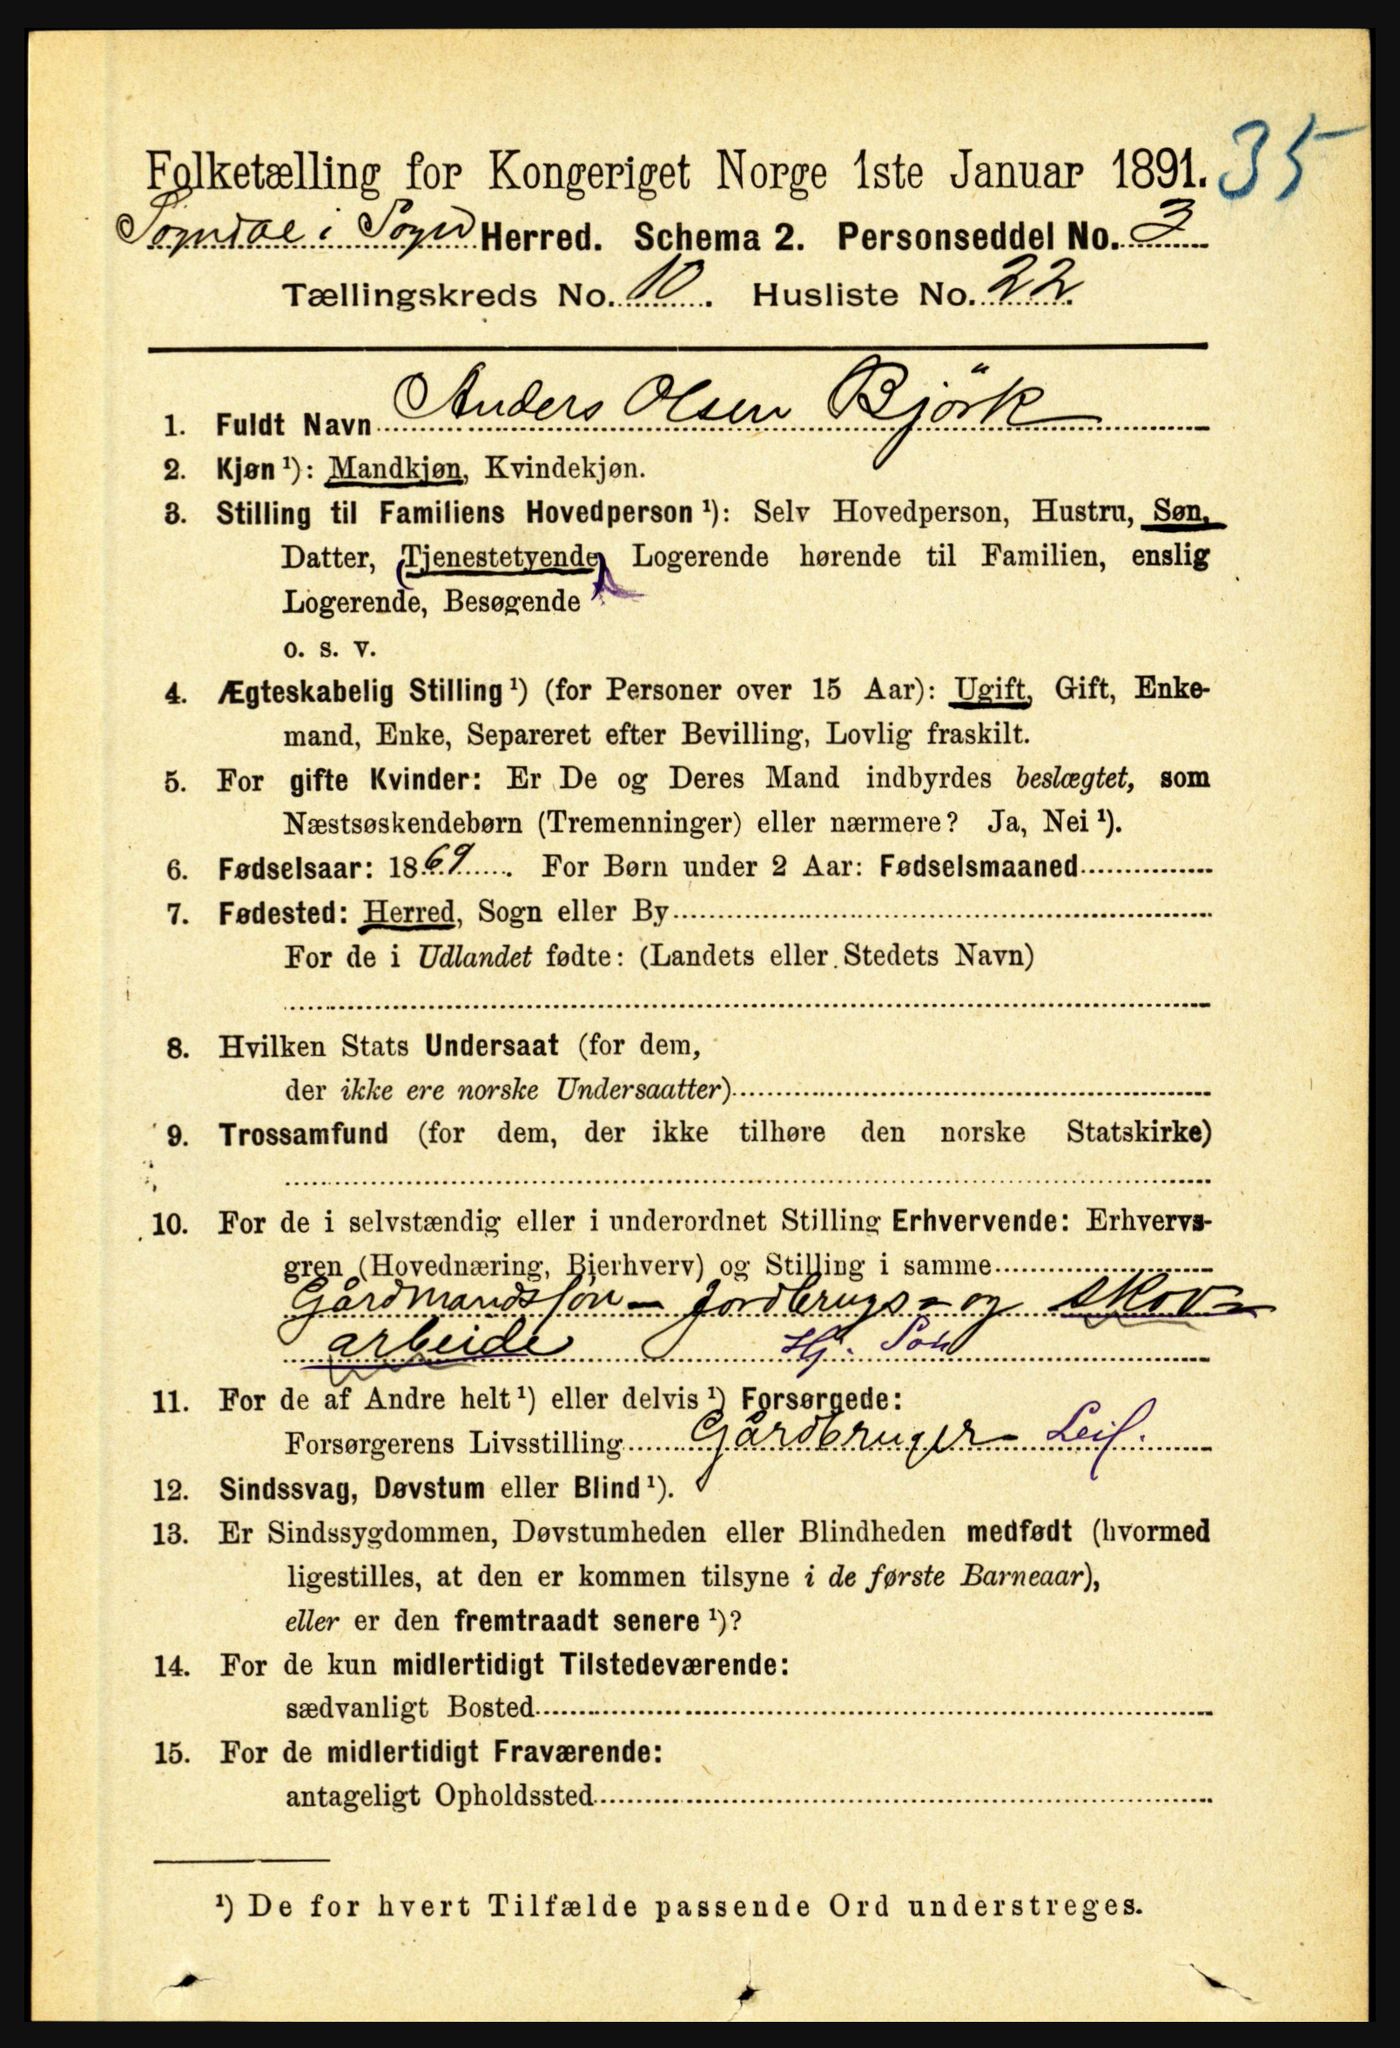 35
Folketælling for Kongeriget Norge 1ste Januar 1891.
Sogndal i Sogn Herred. Schema 2. Personseddel No. 3
Tællingskreds No. 10. Husliste No. 22
1. Fuldt Navn Anders Olsen Björk
2. Kjøn ¹): Mandkjøn, Kvindekjøn.
3. Stilling til Familiens Hovedperson ¹): Selv Hovedperson, Hustru, Søn,
Datter, (Tjenestetyende) Logerende hørende til Familien, enslig
Logerende, Besøgende
o. s. v.
4. Ægteskabelig Stilling ¹) (for Personer over 15 Aar): Ugift, Gift, Enke-
mand, Enke, Separeret efter Bevilling, Lovlig fraskilt.
5. For gifte Kvinder: Er De og Deres Mand indbyrdes beslægtet, som
Næstsøskendebørn (Tremenninger) eller nærmere? Ja, Nei ¹).
6. Fødselsaar: 1869. For Børn under 2 Aar: Fødselsmaaned
7. Fødested: Herred, Sogn eller By
For de i Udlandet fødte: (Landets eller Stedets Navn)
8. Hvilken Stats Undersaat (for dem,
der ikke ere norske Undersaatter)
9. Trossamfund (for dem, der ikke tilhøre den norske Statskirke)
10. For de i selvstændig eller i underordnet Stilling Erhvervende: Erhvervs-
gren (Hovednæring, Bierhverv) og Stilling i samme
Gårdmandssøn - Jordbrugs- og skov-
arbeide Hj. Søn
11. For de af Andre helt ¹) eller delvis ¹) Forsørgede:
Forsørgerens Livsstilling Gårdbruger Leil.
12. Sindssvag, Døvstum eller Blind ¹).
13. Er Sindssygdommen, Døvstumheden eller Blindheden medfødt (hvormed
ligestilles, at den er kommen tilsyne i de første Barneaar),
eller er den fremtraadt senere ¹)?
14. For de kun midlertidigt Tilstedeværende:
sædvanligt Bosted
15. For de midlertidigt Fraværende:
antageligt Opholdssted
¹) De for hvert Tilfælde passende Ord understreges.